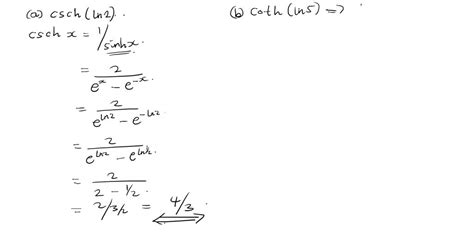 (a) csch (ln2).
csch x = 1/sinhx.
= 2/(e^x − e^−x).
= 2/(e^ln2 − e^−ln2).
= 2/(e^ln2 − e^ln½)
= 2/(2 − 1/2).
= 2/3/2 = 4/3
(b) coth (ln5) =>